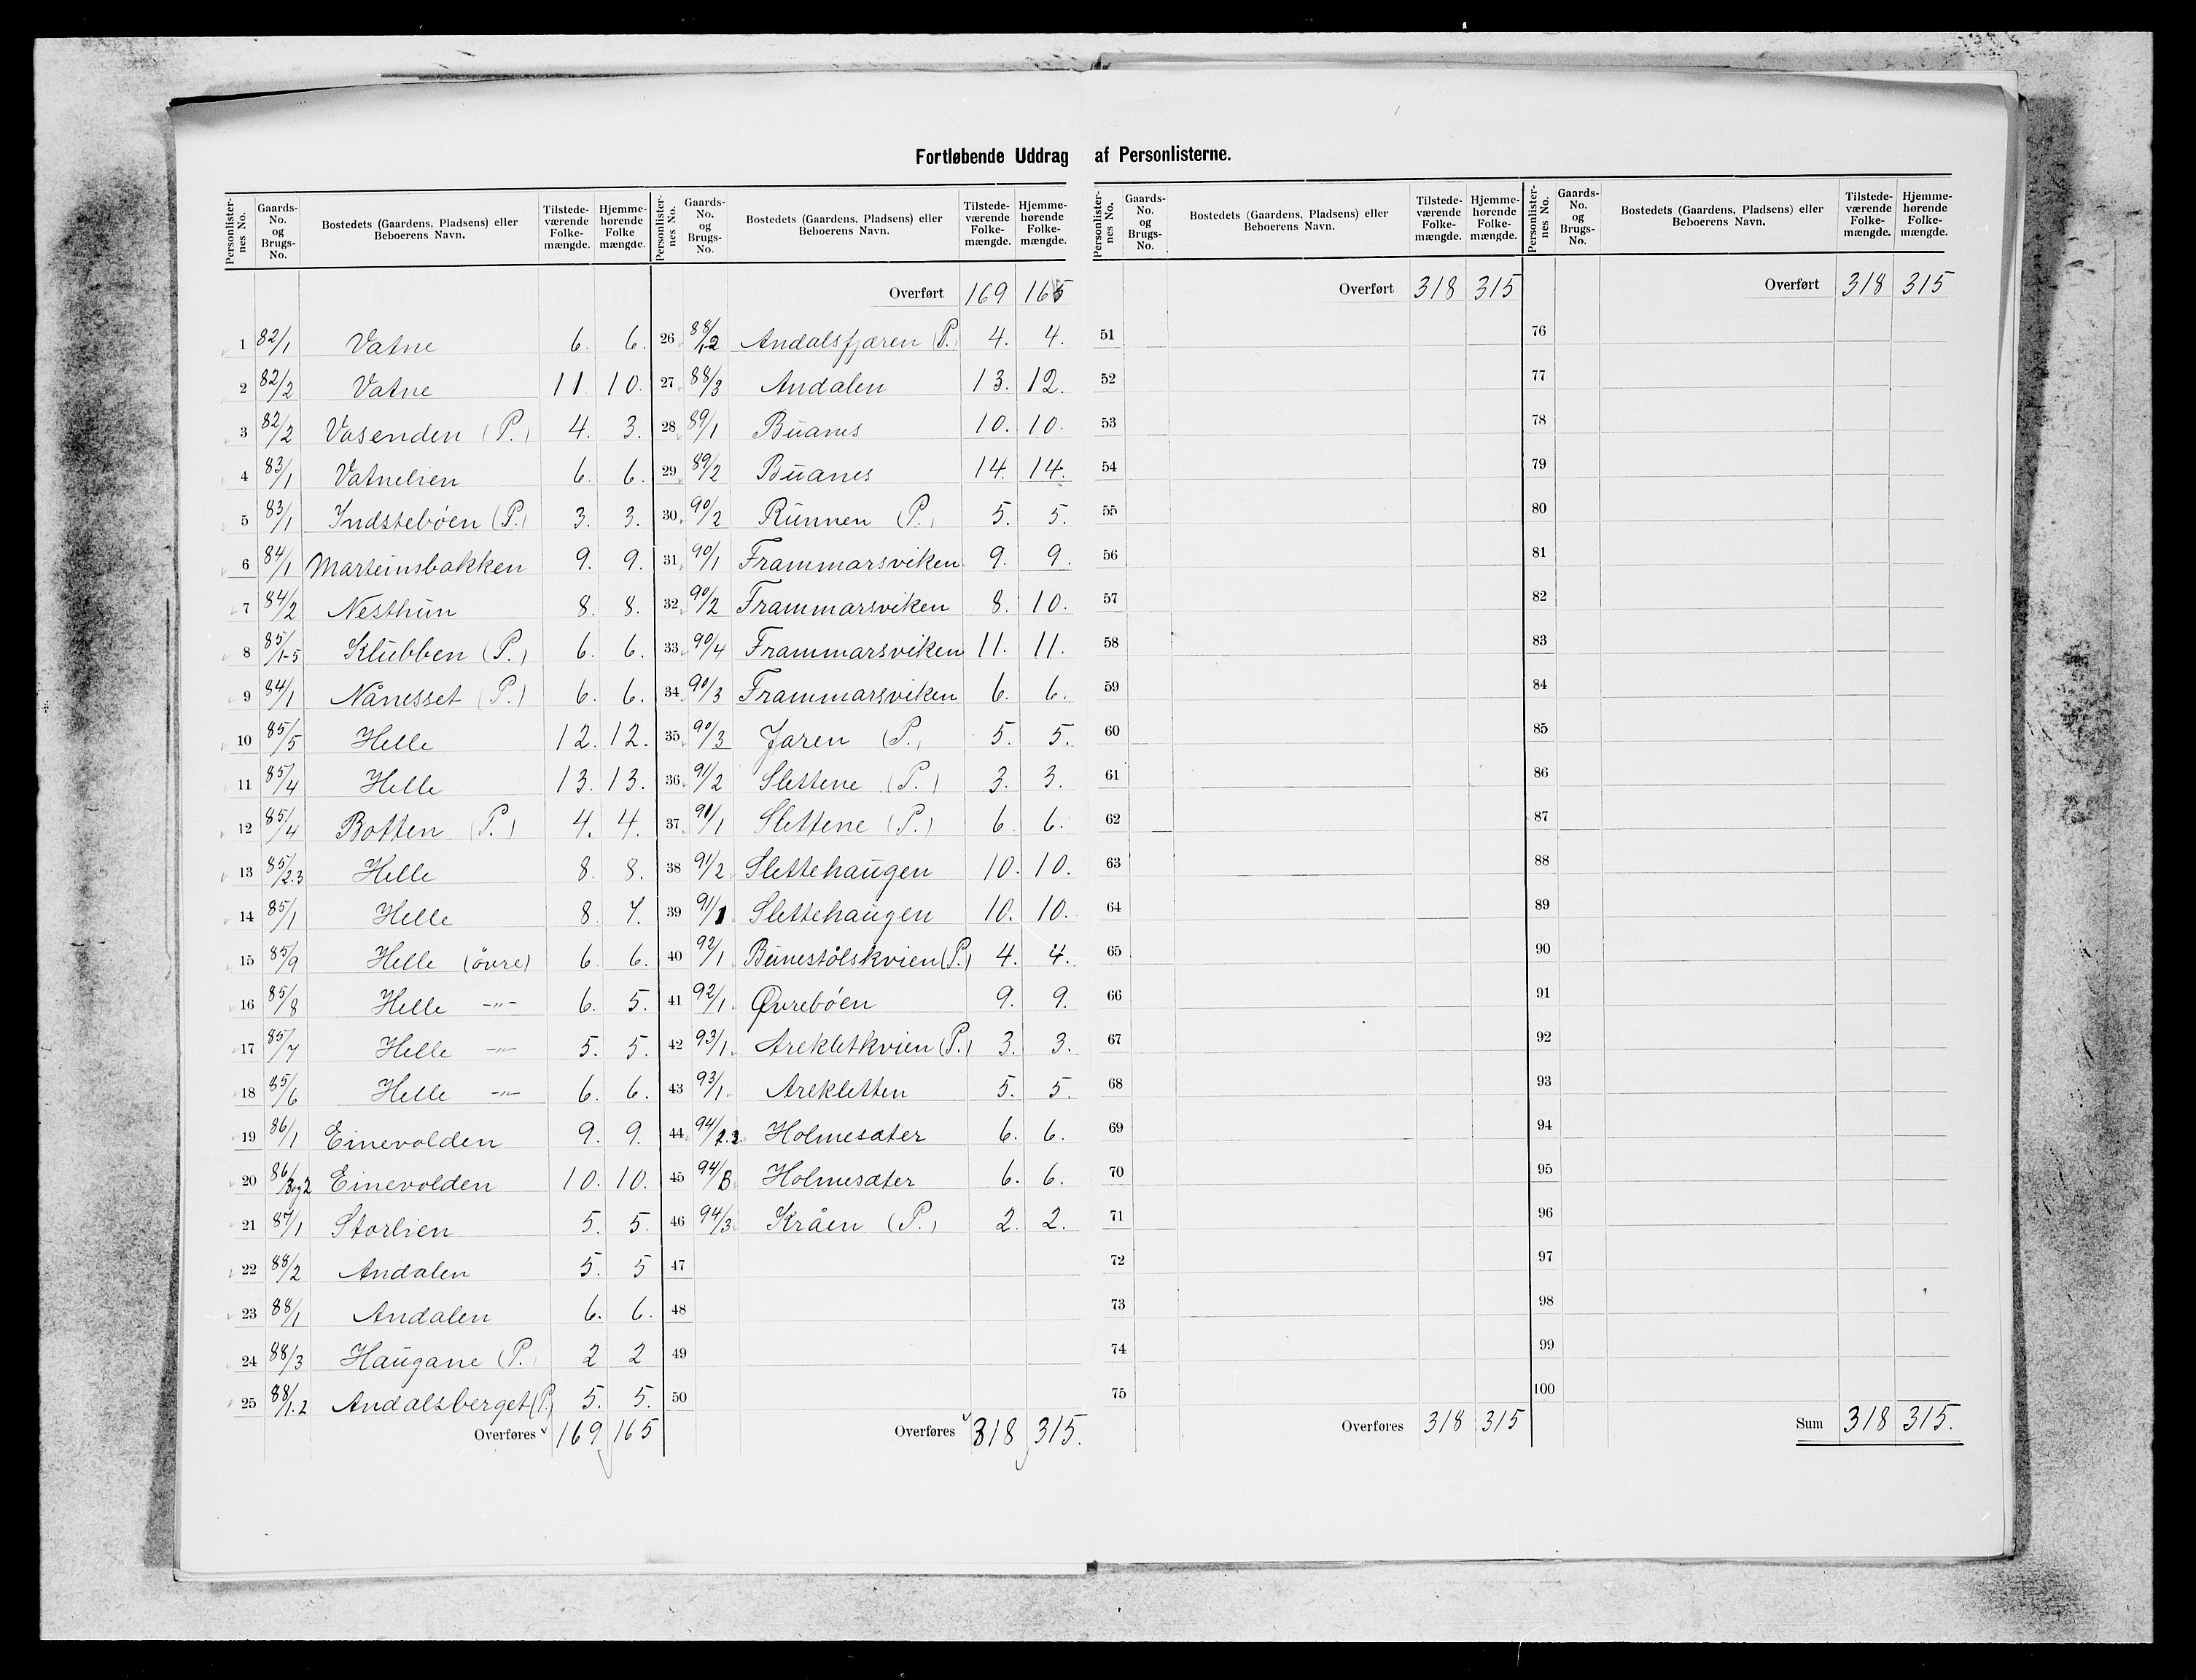 Fortløbende Uddrag af Personlisterne.
Personlister-nes No. | Gaards-No. og Brugs-No. | Bostedets (Gaardens, Pladsens) eller Beboerens Navn. | Tilstede-værende Folke-mængde. | Hjemme-hørende Folke mængde.
1 82/1 Vatne 6. 6.
2 82/2 Vatne 11 10.
3 82/2 Vasenden (P.) 4. 3.
4 83/1 Vatnelien 6. 6.
5 83/1 Indsteböen (P.) 3. 3.
6 84/1 Marteinsbakken 9. 9.
7 84/2 Nesthun 8. 8.
8 85/1-5 Klubben (P.) 6. 6.
9 84/1 Nånesset (P.) 6. 6.
10 85/5 Helle 12. 12.
11 85/4 Helle 13. 13.
12 85/4 Botten (P.) 4. 4.
13 85/2.3 Helle 8. 8.
14 85/1 Helle 8. 7.
15 85/9 Helle (övre) 6. 6.
16 85/8 Helle -"- 6. 5.
17 85/7 Helle -"- 5. 5.
18 85/6 Helle -"- 6. 6.
19 86/1 Einevolden 9. 9.
20 86/3og2 Einevolden 10. 10.
21 87/1 Storlien 5. 5.
22 88/2 Andalen 5. 5
23 88/1 Andalen 6. 6.
24 88/3 Haugane (P.) 2 2
25 88/1.2 Andalsberget (P.) 5. 5.
Overføres 169 165
Personlister-nes No. | Gaards-No. og Brugs-No. | Bostedets (Gaardens, Pladsens) eller Beboerens Navn. | Tilstede-værende Folke-mængde. | Hjemme-hørende Folke-mængde.
Overført 169 165
26 88/1,2 Andalsfjæren (P.) 4. 4.
27 88/3 Andalen 13. 12.
28 89/1 Buanes 10. 10.
29 89/2 Buanes 14. 14.
30 90/2 Runnen (P.) 5. 5.
31 90/1 Frammarsviken 9. 9.
32 90/2 Frammarsviken 8. 10.
33 90/4 Frammarsviken 11. 11.
34 90/3 Frammarsviken 6. 6.
35 90/3 Jaren (P.) 5. 5.
36 91/2 Slettene (P.) 3. 3.
37 91/1 Slettene (P.) 6. 6.
38 91/2 Slettehaugen 10. 10.
39 91/1 Slettehaugen 10. 10.
40 92/1 Bunestölskvien (P.) 4. 4.
41 92/1 Øvreböen 9. 9.
42 93/1 Arekletkvien (P.) 3. 3.
43 93/1 Arekletten 5. 5.
44 94/2.3 Holmesæter 6. 6.
45 94/ Holmesæter 6. 6.
46 94/3 Kråen (P.) 2. 2.
47
48
49
50
Overføres 318 315.
Personlister-nes No. | Gaards-No. og Brugs-No. | Bostedets (Gaardens, Pladsens) eller Beboerens Navn. | Tilstede-værende Folke-mængde. | Hjemme-hørende Folke-mængde.
Overført 318 315
51
52
53
54
55
56
57
58
59
60
61
62
63
64
65
66
67
68
69
70
71
72
73
74
75
Overføres 318 315
Personlister-nes No. | Gaards-No. og Brugs-No. | Bostedets (Gaardens, Pladsens) eller Beboerens Navn. | Tilstede-værende Folke-mængde. | Hjemme-hørende Folke-mængde.
Overført 318 315
76
77
78
79
80
81
82
83
84
85
86
87
88
89
90
91
92
93
94
95
96
97
98
99
100
Sum 318 315.